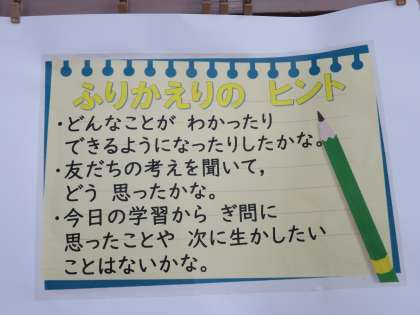 ふりかえりの ヒント
・どんなことが わかったり
できるようになったりしたかな。
・友だちの考えを聞いて,
どう 思ったかな。
・今日の学習から ぎ問に
思ったことや 次に生かしたい
ことはないかな。